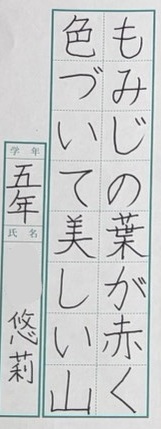 もみじの葉が赤く
色づいて美しい山
学年
五年
氏名
悠莉